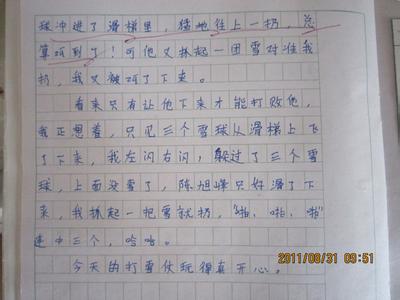 球冲进了滑梯里，猛地往上一扔，总
算打到了！可他又抓起一团雪对准我
扔，我又被打了下来。
看来只有让他下来才能打败他，
我正想着，只见三个雪球从滑梯上飞
了下来，我左闪右闪，躲过了三个雪
球，上面没雪了，陈旭峰只好滑了下
来，我抓起一把雪就扔，“啪、啪、啪”
连中三个，哈哈。
今天的打雪仗玩得真开心。
2011/08/31 09:51